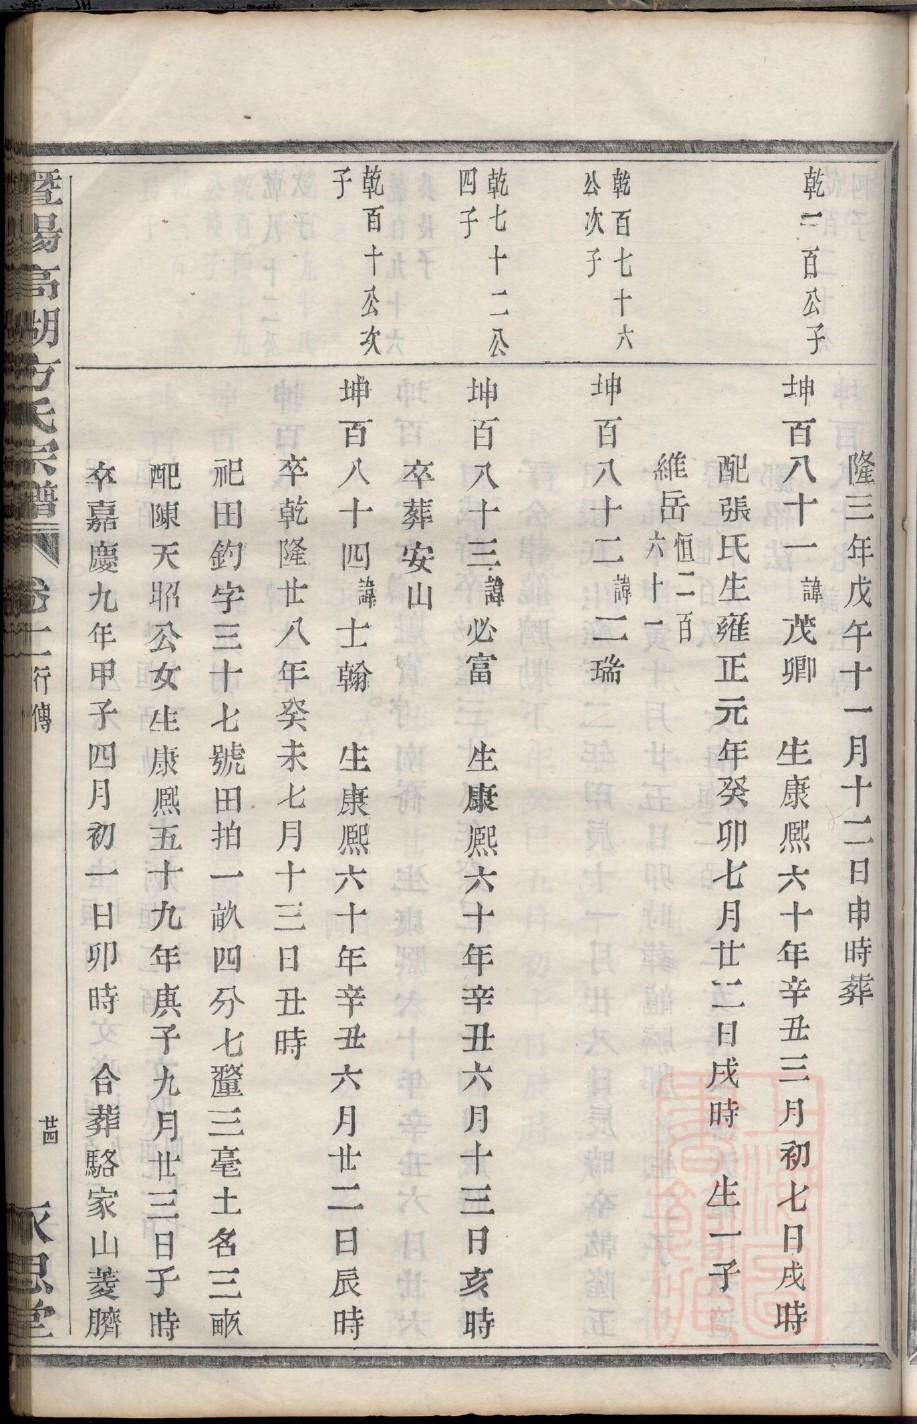 隆三年戊午十一月十二日申時葬
乾一百公子
坤百八十一諱茂卿　生康熙六十年辛丑三月初七日戌時
配張氏生雍正元年癸卯七月廿二日戌時　生一子
維岳恒二百六十一
乾百七十六公次子
坤百八十二諱三瑞
乾七十二公四子
坤百八十三諱必富　生康熙六十年辛丑六月十三日亥時
卒葬安山
乾百十公次子
坤百八十四諱士翰　生康熙六十年辛丑六月廿二日辰時
卒乾隆廿八年癸未七月十三日丑時
祀田釣字三十七號田拍一畝四分七釐三毫土名三畝
配陳天昭公女生康熙五十九年庚子九月廿三日子時
卒嘉慶九年甲子四月初一日卯時　合葬駱家山菱臍
暨陽高湖方氏宗譜　卷二　行傳　廿四　永思堂